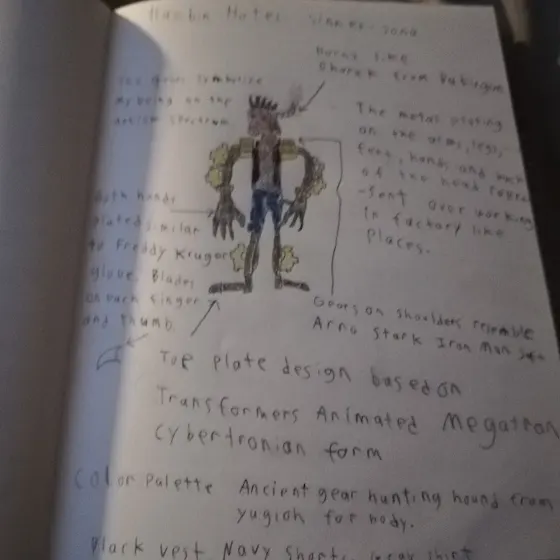 Hazbin Hotel Sinner-sona
Horns like
Sharak from Bakugan
The gears symbolize
my being on the
autism spectrum
The metal plating
on the arms, legs,
feet, hands, and
of the head repre
-sent over working
in factory like
places.
Both hands
plated similar
to Freddy Kruger
glove. Blades
on each finger
and thumb
Gears on shoulders resemble
Arno Stark Iron Man
Toe plate design based on
Transformers Animated Megatron
Cybertronian form
Color Palette Ancient gear hunting hound from
yugioh for body.
Black vest Navy shorts, gray shirt